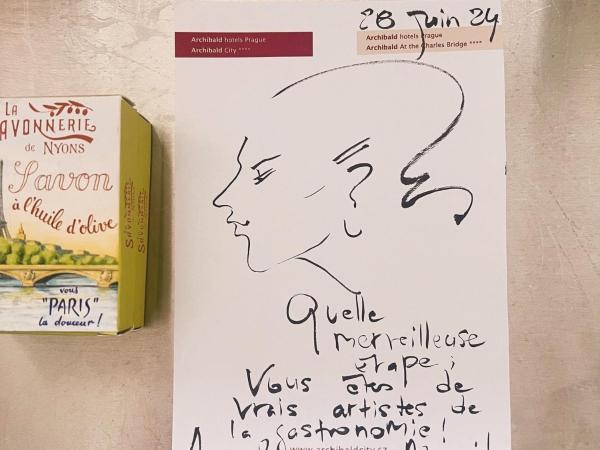 LA
SAVONNERIE
de NYONS
Savon
à l'huile d'olive
vous
"PARIS"
la douceur!
Archibald hotels Prague
Archibald City ****
28 Juin 24
Archibald hotels Prague
Archibald At the Charles Bridge ****
Quelle
merveilleuse
étape;
Vous êtes de
vrais artistes de
la gastronomie!
www.archibaldcity.cz